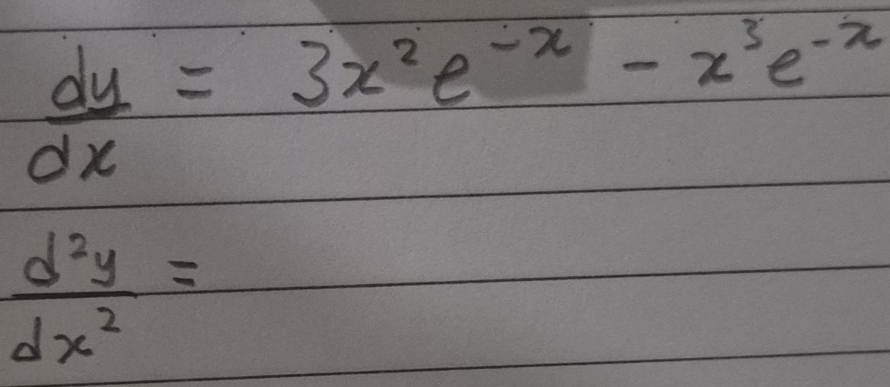 dy/dx = 3x²e⁻ˣ - x³e⁻ˣ
d²y/dx² =